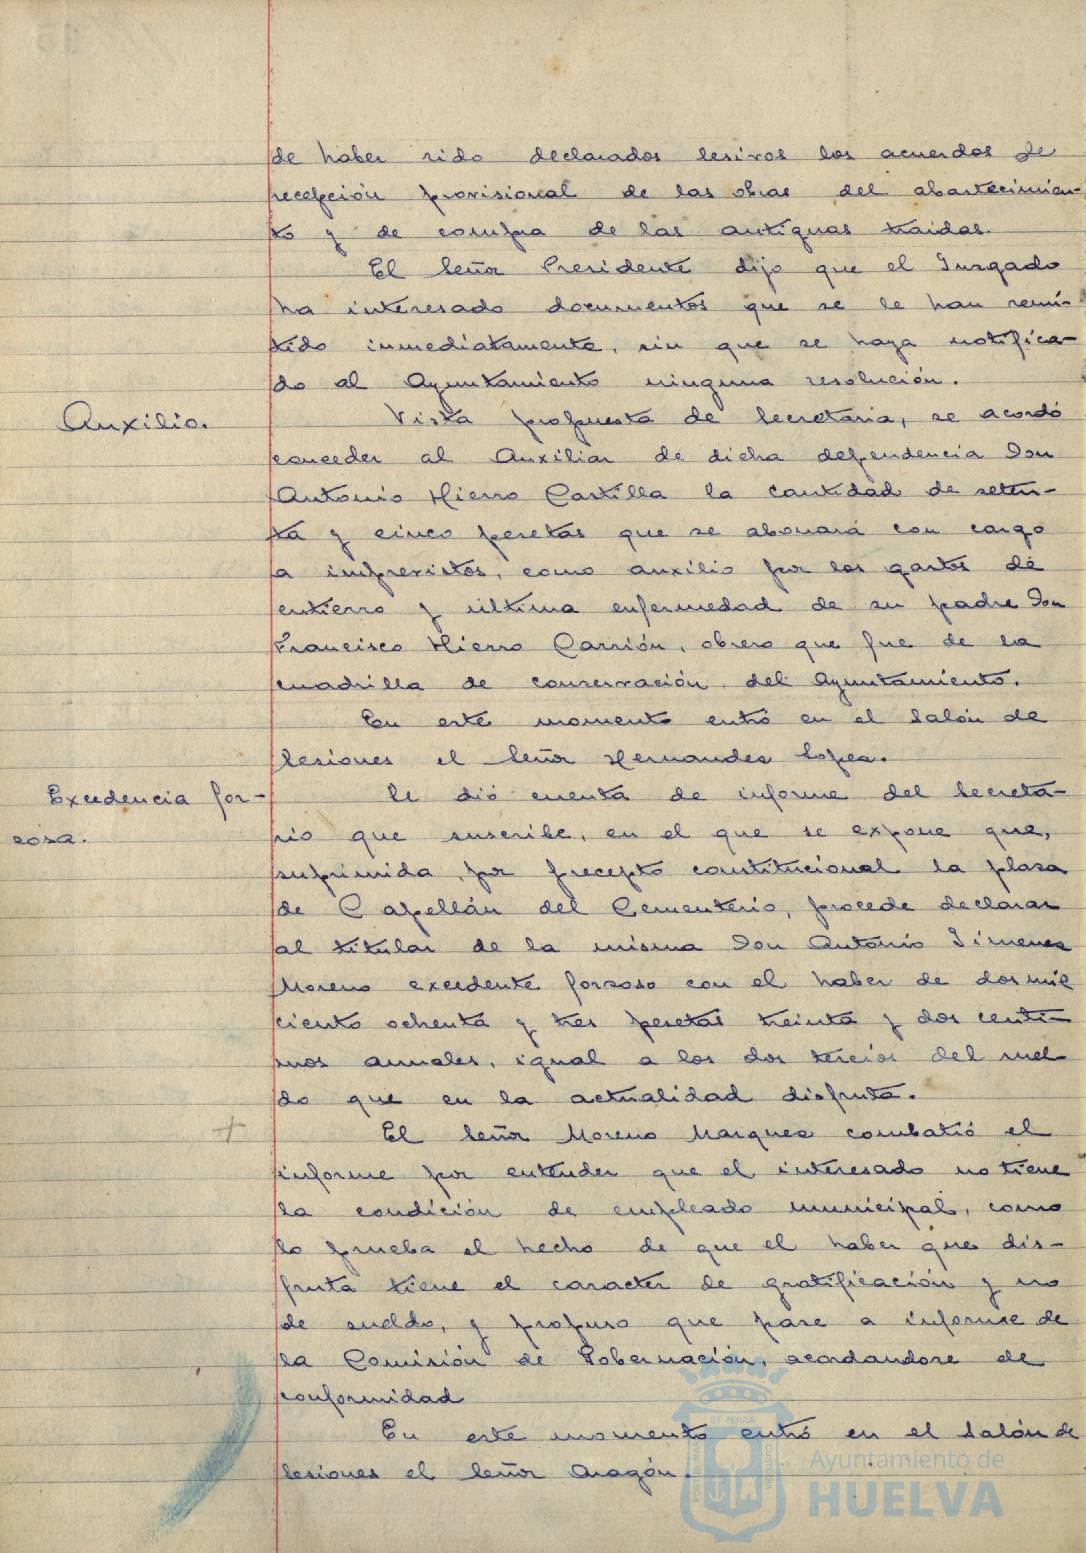 de haber sido declarados lesivos los acuerdos de
recepción provisional de las obras del abastecimien-
to y de compra de las antiguas traidas.
El Señor Presidente dijo que el Juzgado
ha interesado documentos que se le han remi-
tido inmediatamente, sin que se haya notifica-
do al Ayuntamiento ninguna resolución.
Auxilio.
Vista propuesta de Secretaria, se acordó
conceder al Auxiliar de dicha dependencia Don
Antonio Hierro Castilla la cantidad de seten-
ta y cinco pesetas que se abonará con cargo
a imprevistos, como auxilio por los gastos de
entierro y última enfermedad de su padre Don
Francisco Hierro Carrión, obrero que fue de la
cuadrilla de conservación del Ayuntamiento.
En este momento entró en el Salón de
Sesiones el Señor Hernandez Lopez.
Excedencia for-
zosa.
Se dió cuenta de informe del Secreta-
rio que suscribe, en el que se expone que,
suprimida por precepto constitucional la plaza
de Capellán del Cementerio, procede declarar
al titular de la misma Don Antonio Jimenez
Moreno excedente forzoso con el haber de dos mil
ciento ochenta y tres pesetas treinta y dos centi-
mos anuales, igual a los dos tercios del suel-
do que en la actualidad disfruta.
El Señor Moreno Marquez combatió el
informe por entender que el interesado no tiene
la condición de empleado municipal, como
lo prueba el hecho de que el haber que dis-
fruta tiene el caracter de gratificación y no
de sueldo, y propuso que pase a informe de
la Comisión de Gobernación, acordandose de
conformidad
En este momento entró en el Salón de
Sesiones el Señor Aragón.
Ayuntamiento de
HUELVA